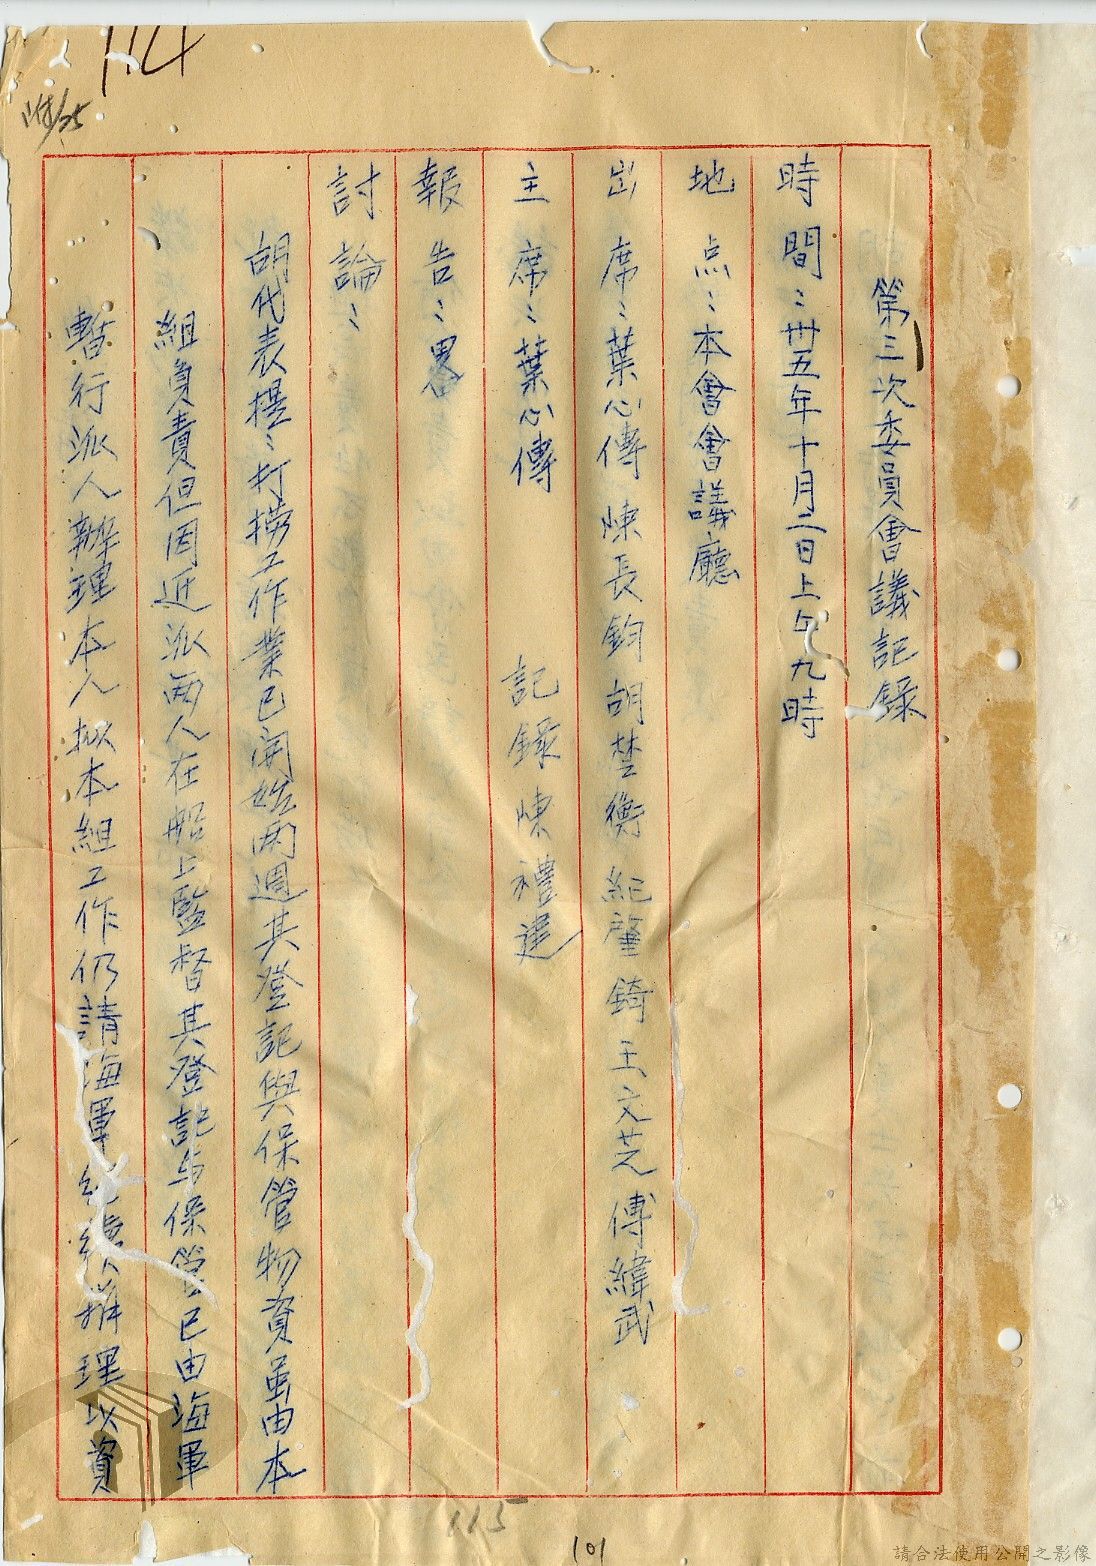 114
第三次委員會議記録
時間：卅五年十月二日上午九時
地点：本會會議廳
出席：葉心傳 陳長鈞 胡楚衡 紀肇錡 王文芝 傅緯武
主席：葉心傳 記録 陳禮
報告：畧
討論：
胡代表提：打撈工作業已開始兩週其登記與保管物資虽由本
組負責但因近派兩人在船上監督其登記与保管已由海軍
暫行派人辦理本人拟本組工作仍請海軍繼續辦理以資
115
101
請合法使用公開之影像